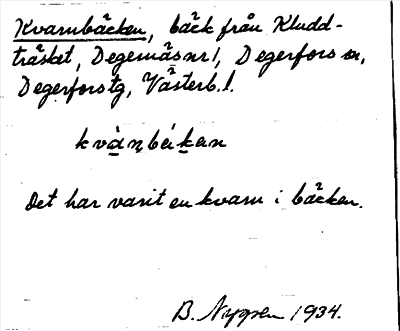 Kvarnbäcken, bäck från Kludd-
träsket, Degernäs nr 1, Degerfors sn,
Degerfors tg, Västerb. l.
kvànbäkan
Det har varit en kvarn i bäcken.
B. Nygren 1934.